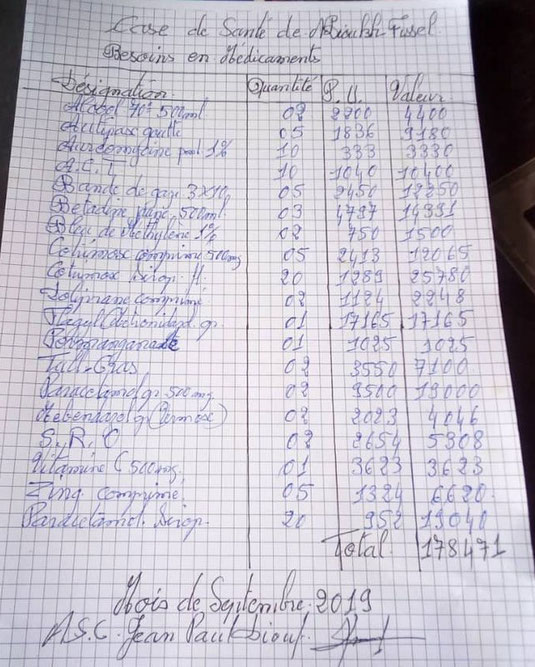 Case de Santé de Fissel
Besoins en Médicaments
Désignation Quantité P.U. Valeur
Alcool 70° 500ml 02 2200 4400
goutte 05 1836 9180
Auréomycine 1% 10 333 3330
A.C.T 10 1040 10400
Bande de gaze 3x10 05 2450 12250
Betadine 500ml 03 4797 14391
Bleu de Methylène 1% 02 750 1500
comprimé 500mg 05 2413 12065
Sirop 20 1289 25780
Doliprane comprimé 02 1124 2248
01 17165 17165
Permanganate 01 1025 1025
Tull-Gras 02 3550 7100
Paracetamol gr 500mg 02 9500 19000
02 2023 4046
S.R.O 02 2654 5308
Vitamine C 500mg 01 3623 3623
Zinq comprimé 05 1324 6620
Paracétamol Sirop 20 952 19040
Total 178471
Mois de Septembre 2019
A.S.C. Jean Paul Diouf